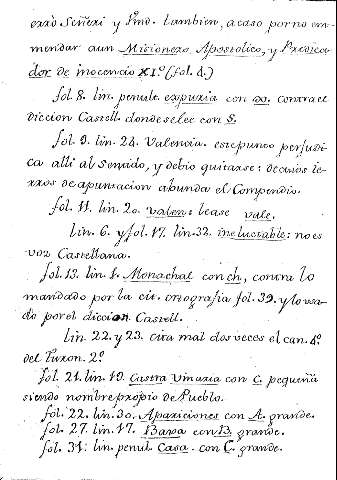 erró Señeri y Pmo. tambien, acaso por no en-
mendar a un Misionero Apostolico, y Predica-
dor de inocencio XIº (fol. 4.)
fol. 8. lin. penult. expuria con x. contra el
diccion Castell. donde se lee con S.
fol. 9. lin. 24. Valencia. este punto perjudi-
ca alli al Sentido, y debio quitarse: de estos ie-
rros de apuntacion abunda el Compendio.
fol. 11. lin. 20. valen: lease vale.
lin. 6. y fol. 17. lin. 32. ineluctable: no es
voz Castellana.
fol. 13. lin. 1. Monachal con ch, contra lo
mandado por la cit. ortografia fol. 39. y lo usa-
do por el diccion Castell.
lin. 22. y 23. cita mal dos veces el can. 4º
del Turon. 2º
fol. 21. lin. 19. Castra Vinaria con C. pequeña
siendo nombre propio de Pueblo.
fol. 22. lin. 30. Apariciones con A. grande.
fol. 27. lin. 17. Bava con B. grande.
fol. 31. lin. penul. Casa. con C. grande.